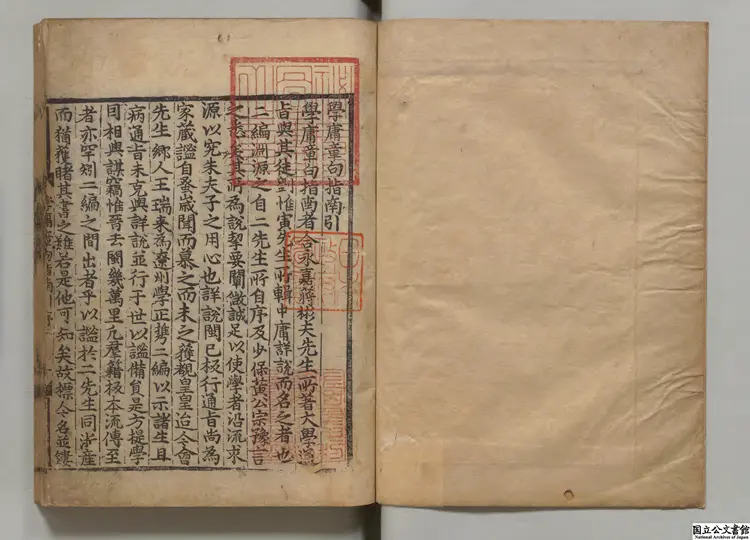 學庸章句指南引
學庸章句指南者合永嘉蔣彬夫先生所著大學通
旨與其徒劉惟寅先生所輯中庸詳說而名之者也
二編淵源之自二先生所自序及少保黃公宗豫言
之悉矣其所為說挈要闡微誠足以使學者沿流求
源以究朱夫子之用心也詳說閩已板行通旨尚為
家藏謐自蚤歲聞而慕之而未之獲覩皇皇迨今會
先生鄉人王瑞來為遼州學正携二編以示諸生且
病通旨未克與詳說並行于世以謐備員是方提學
目相與謀竊惟晉去閩幾萬里凡羣籍板本流傳至
者亦罕矧二編之間出者乎以謐於二先生同淛產
而猶獲睹其書之難若是他可知矣故摽今名並鋟
国立公文書館
National Archives of Japan